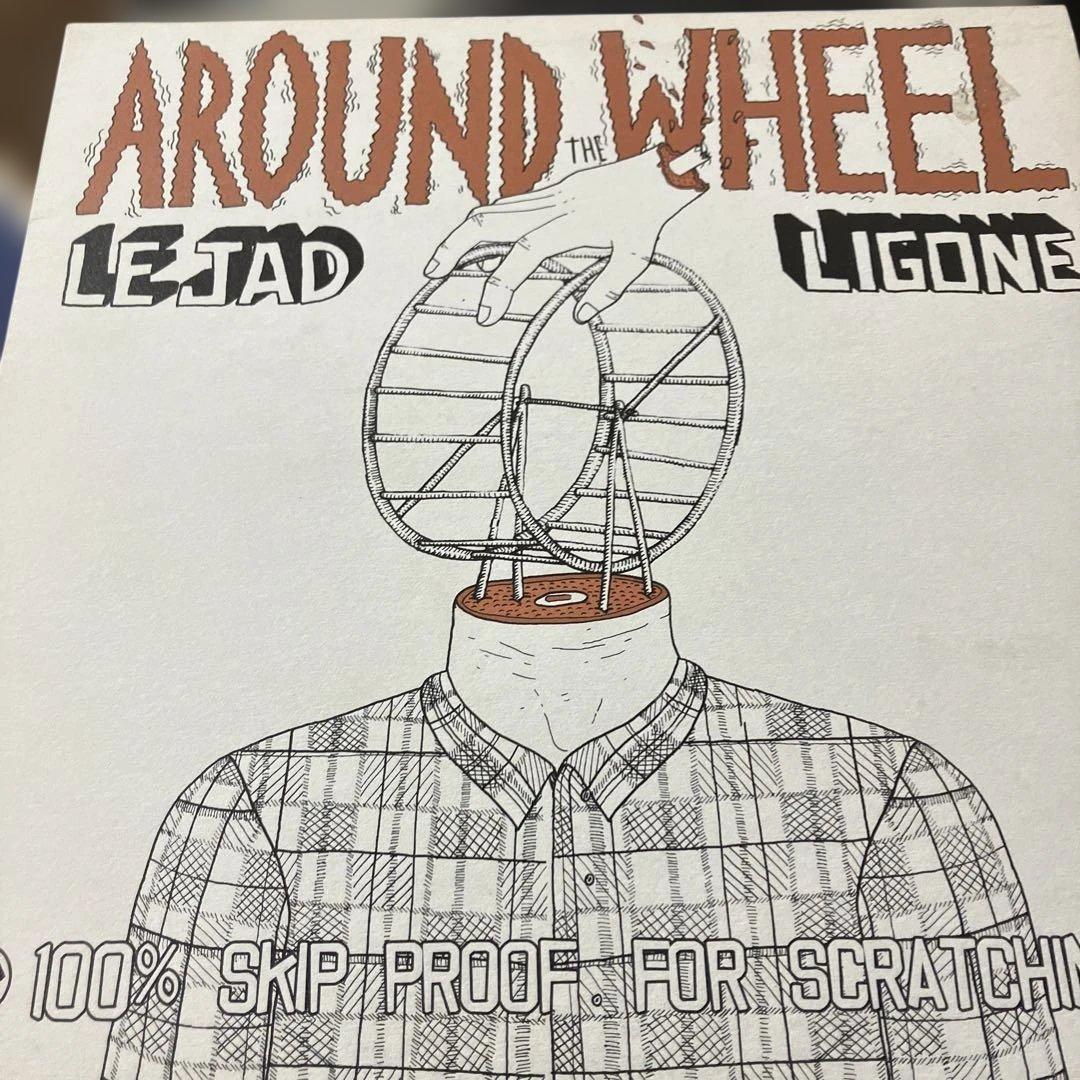 AROUND THE WHEEL
LE JAD LIGONE
100% SKIP PROOF FOR SCRATCHIN